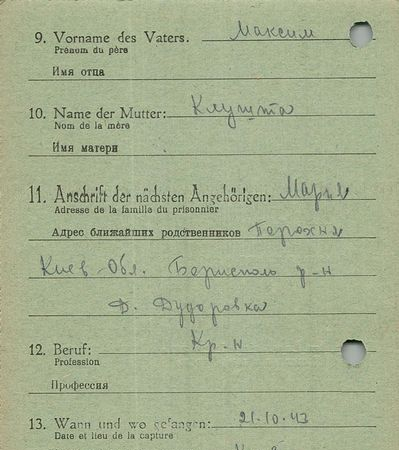 9. Vorname des Vaters: Максим
Prénom du père
Имя отца
10. Name der Mutter:
Nom de la mère
Имя матери
11. Anschrift der nächsten Angehörigen: Мария
Adresse de la famille du prisonnier
Адрес ближайших родственников
Киев-Обл. Борисполь р-н
Д. Дударовка
12. Beruf: Кр-н
Profession
Профессия
13. Wann und wo gefangen: 21.10.43
Date et lieu de la capture